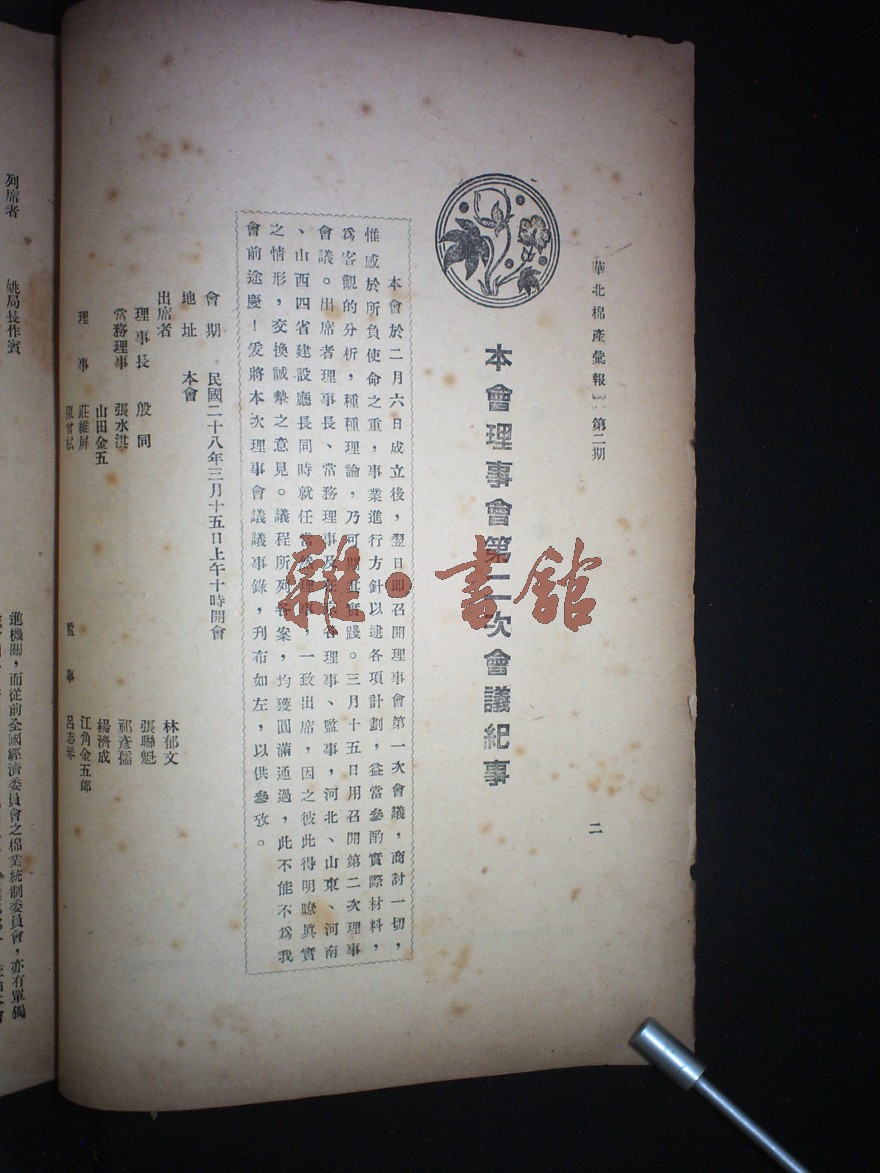 華北棉產彙報 第二期
二
本會理事會第二次會議紀事
本會於二月六日成立後，翌日即召開理事會第一次會議，商討一切，
惟感於所負使命之重，事業進行方針以逮各項計劃，益當參酌實際材料，
爲客觀的分析，種種理論，乃可 實踐。三月十五日用召開第二次理事
會議。出席者理事長、常務理事及 各理事、監事，河北、山東、河南
、山西四省建設廳長同時就任 理事，一致出席，因之彼此得明瞭眞實
之情形，交換誠摯之意見。議程所列各案，均獲圓滿通過，此不能不爲我
會前途慶！爰將本次理事會議議事錄，刊布如左，以供參攷。
會期 民國二十八年三月十五日上午十時開會
地址 本會
出席者
理事長 殷同
常務理事 張水淇
山田金五
理事 莊維屏
陳曾栻
林郁文
張聯魁
祁彥孺
楊濟成
江角金五郎
監事 呂志
列席者 姚局長作賓
進機關，而從前全國經濟委員會之棉業統制委員會，亦有單獨
雜·書館